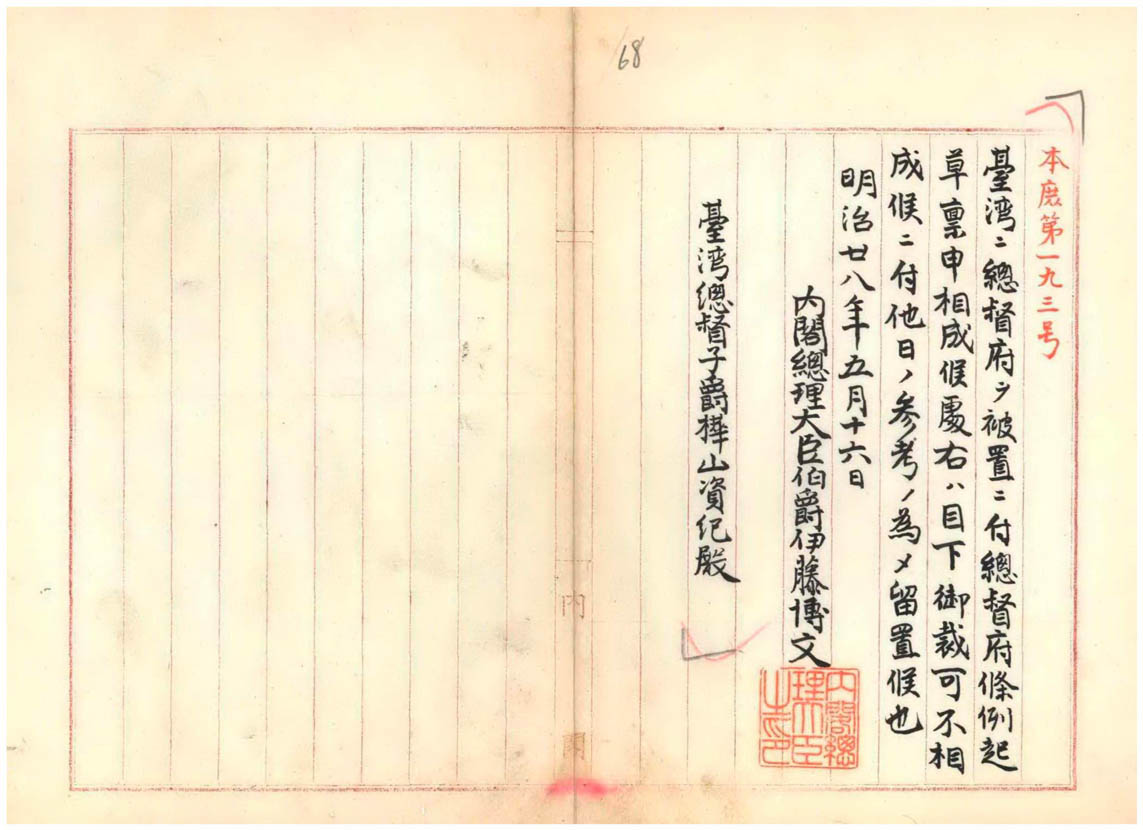 68
本庶第一九三号
臺湾ニ總督府ヲ被置ニ付總督府條例起
草禀申相成候處右ハ目下御裁可不相
成候ニ付他日ノ参考ノ為メ留置候也
明治廿八年五月十六日
内閣總理大臣伯爵伊藤博文
内閣總理大臣之印
臺湾總督子爵樺山資紀殿
内閣